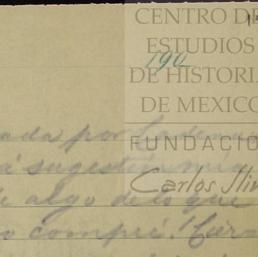 CENTRO DE
ESTUDIOS
190
DE HISTORIA
DE MEXICO
FUNDACIO
Carlos Slim
ada por
á sugestión mía
de algo de lo que
o compré.